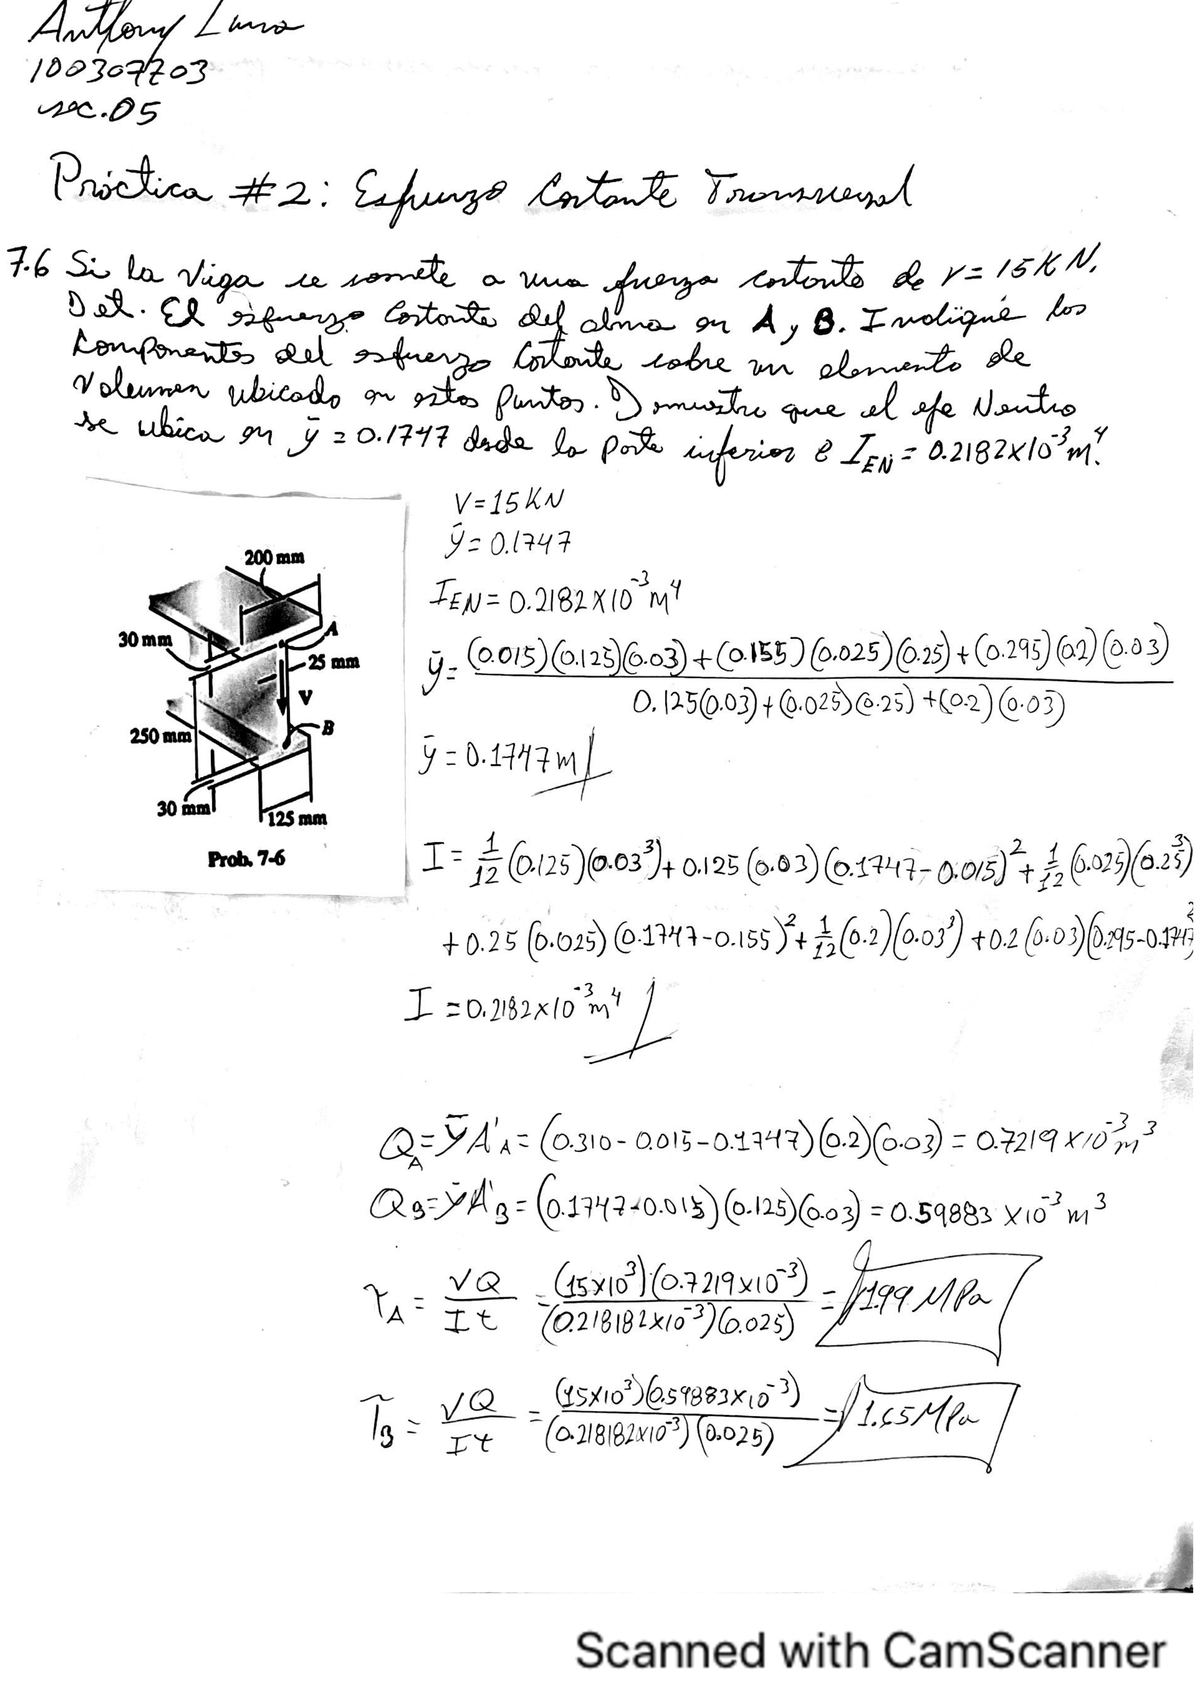 Anthony Luna
100307703
sec.05
Práctica #2: Esfuerzo Cortante Transversal
7.6 Si la viga se somete a una fuerza cortante de V=15KN.
Det. El esfuerzo Cortante del alma en A y B. Indique los
Componentes del esfuerzo Cortante sobre un elemento de
Volumen ubicado en estos Puntos. Demuestre que el eje Neutro
se ubica en ȳ=0.1747 desde la parte inferior e I_EN=0.2182x10⁻³m⁴.
V=15KN
ȳ=0.1747
I_EN=0.2182x10⁻³m⁴
200 mm
30 mm
A
25 mm
V
250 mm
B
30 mm
125 mm
Prob. 7-6
ȳ= (0.015)(0.125)(0.03)+(0.155)(0.025)(0.25)+(0.295)(0.2)(0.03)
0.125(0.03)+(0.025)(0.25)+(0.2)(0.03)
ȳ=0.1747m
I= 1/12(0.125)(0.03³)+0.125(0.03)(0.1747-0.015)²+1/12(0.025)(0.25³)
+0.25(0.025)(0.1747-0.155)²+1/12(0.2)(0.03³)+0.2(0.03)(0.295-0.1747)²
I=0.2182x10⁻³m⁴
Q_A=ȳA'_A=(0.310-0.015-0.1747)(0.2)(0.03)=0.7219x10⁻³m³
Q_B=ȳA'_B=(0.1747-0.015)(0.125)(0.03)=0.59883x10⁻³m³
τ_A= VQ/It = (15x10³)(0.7219x10⁻³)/(0.218182x10⁻³)(0.025) = 1.99 MPa
τ_B= VQ/It = (15x10³)(0.59883x10⁻³)/(0.218182x10⁻³)(0.025) = 1.65MPa
Scanned with CamScanner